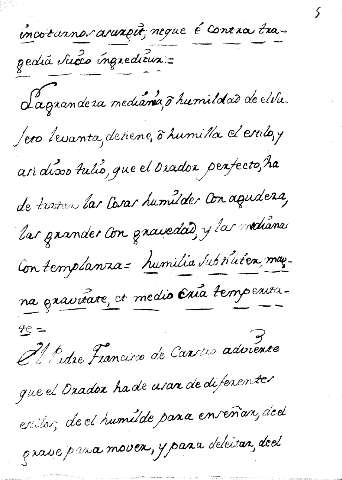 5
in coturnos asurgit, neque è contra tra-
gediâ sueo ingreditur =
La grandeza mediania, ò humildad de el su
geto levanta, detiene, ò humilla el estilo, y
asi dixo tulio, que el Orador perfecto, ha
de tratar las Cosas humildes Con agudeza,
las grandes Con gravedad, y las mediana
Con templanza = humilia subtiliter, mag-
na gravitate, et medio cria temperita-
te =
El Padre Francisco de Castro advierte
que el Orador ha de usar de diferentes
estilos; de el humilde para enseñar, de el
grave para mover, y para deleitar, de el